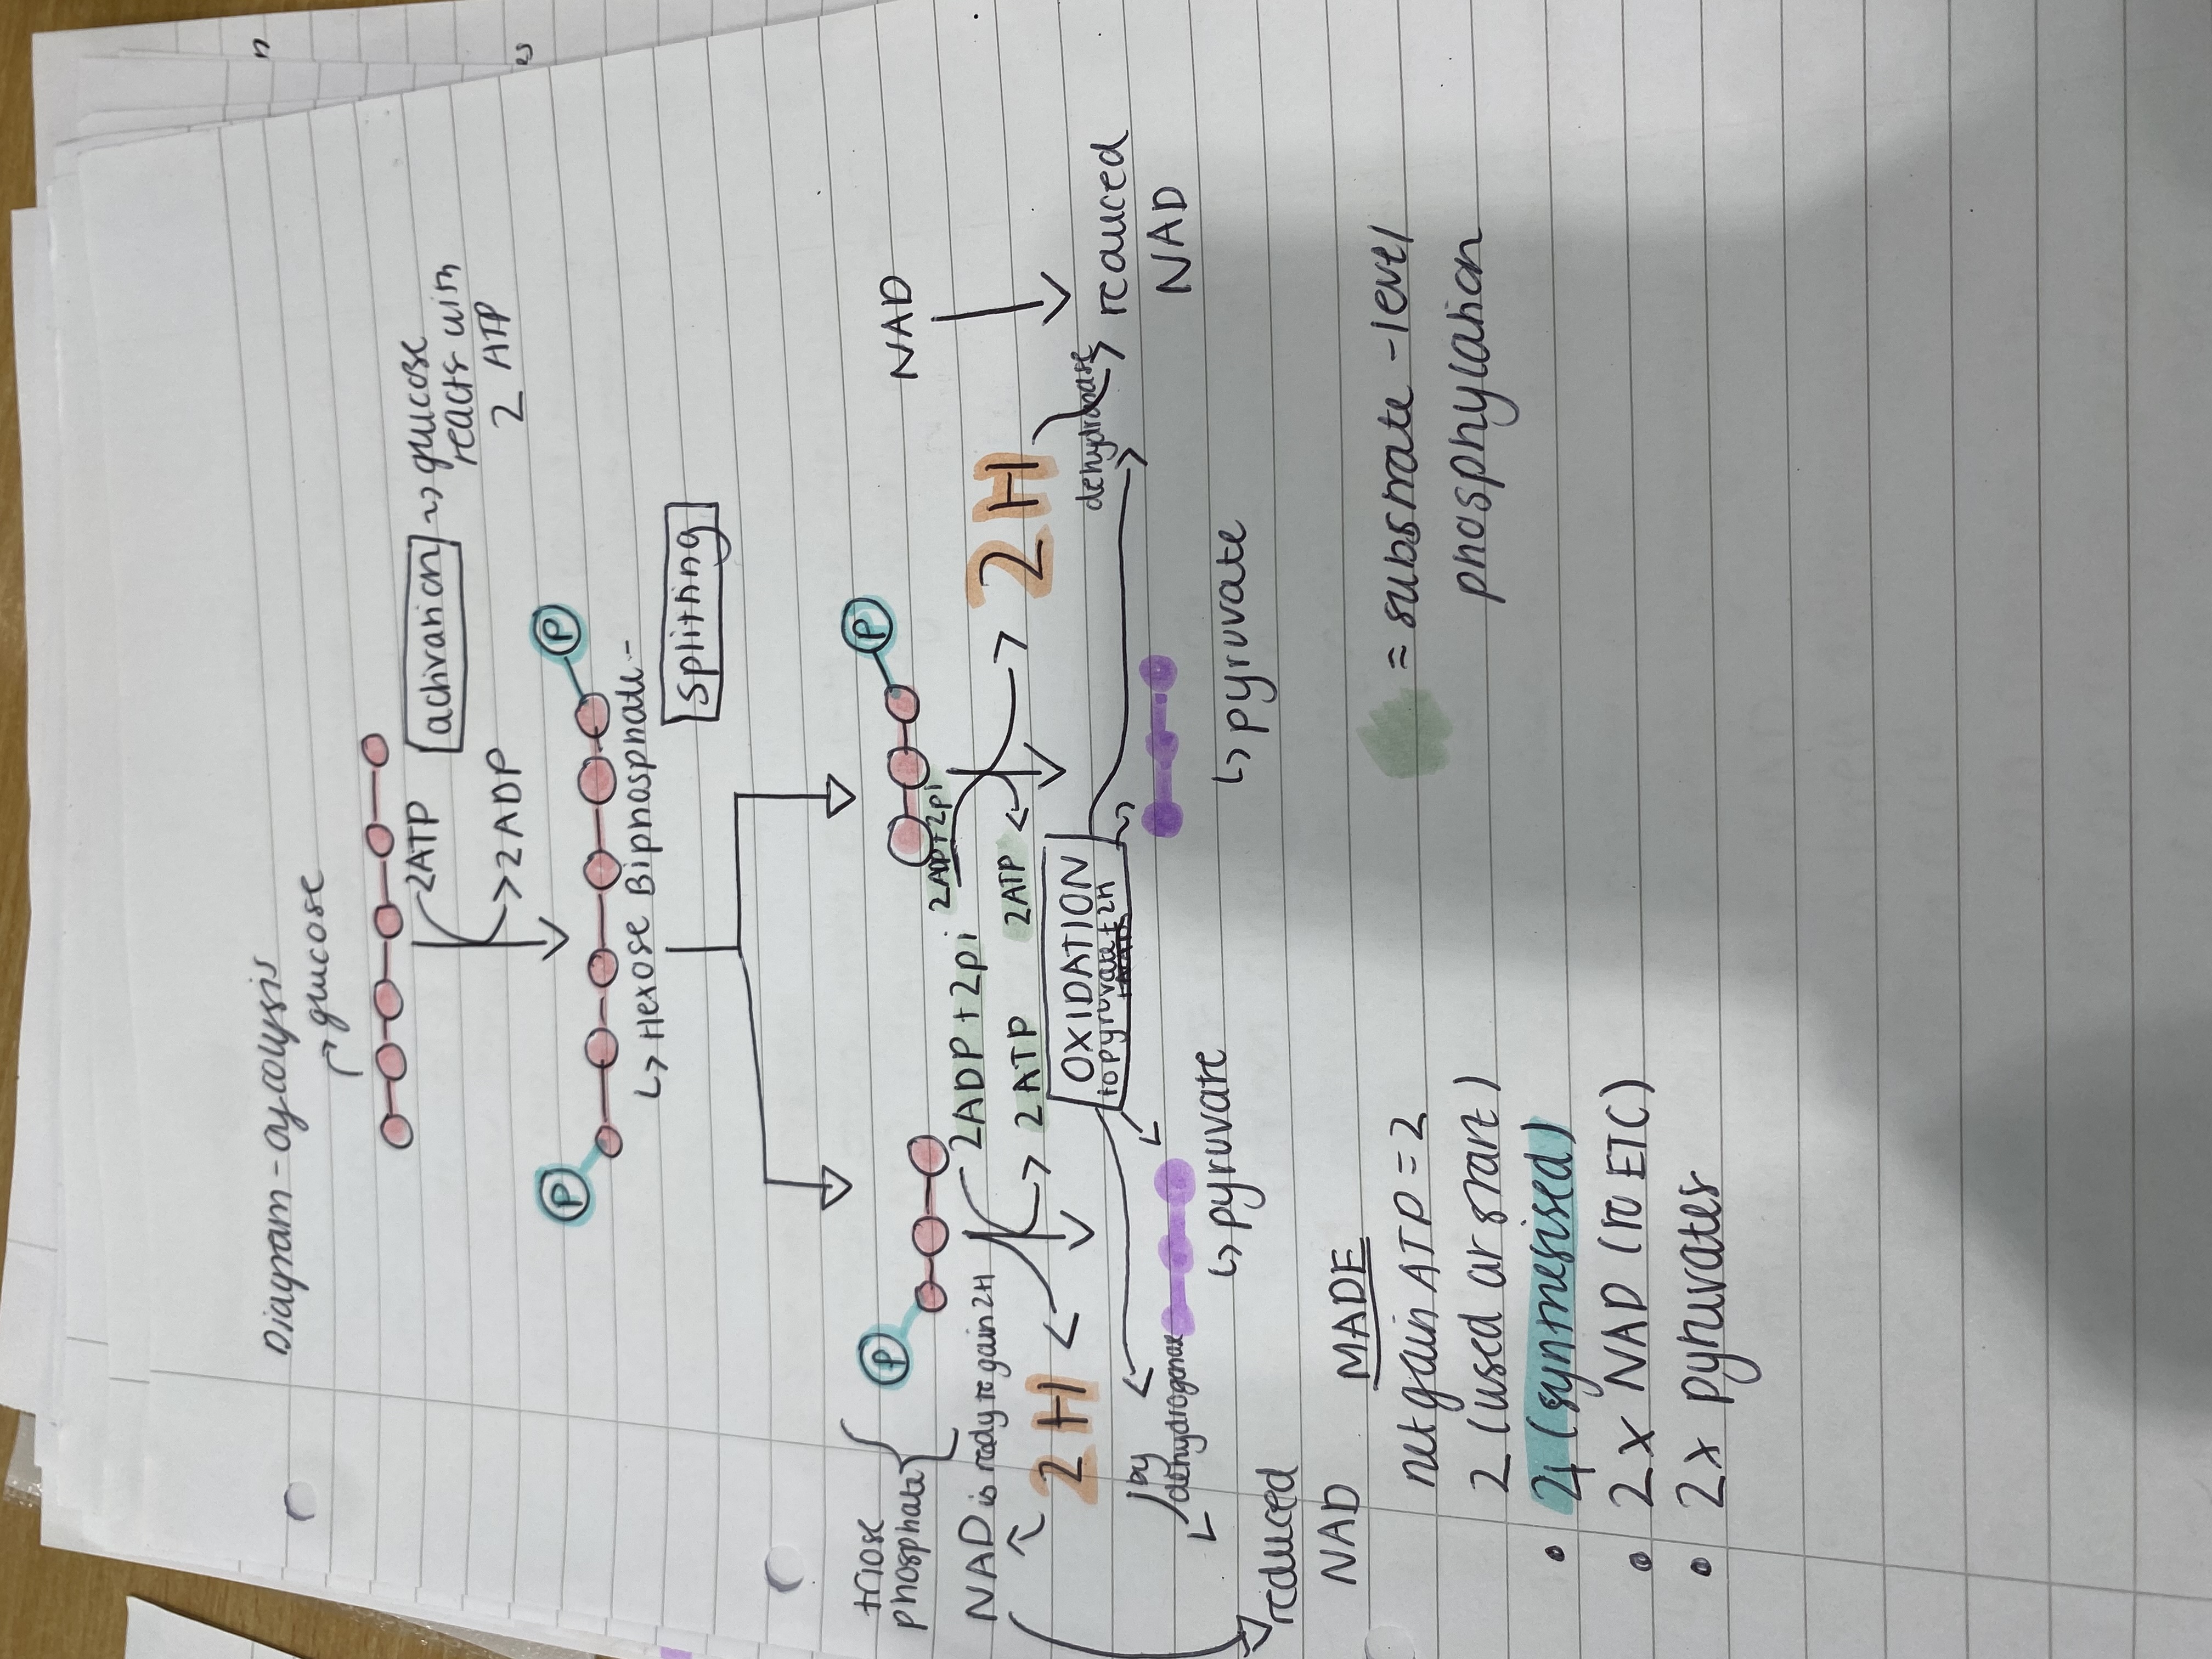 Diagram - Glycolysis
↱ glucose
2ATP
activation ~> glucose
reacts with
2 ATP
> 2 ADP
P
P
↳ Hexose Biphosphate -
splitting
triose
phosphate
P
P
NAD
2ADP + 2pi
2ADP + 2pi
NAD is ready to gain 2H
2 ATP
2ATP
2H
2H
OXIDATION
to pyruvate
2H
dehydrogenase
reduced
NAD
by
dehydrogenase
↳ pyruvate
↳ pyruvate
reduced
NAD
MADE
= substrate - level
phosphylation
net gain ATP = 2
2 (used at start)
• 4 (synthesised)
• 2 x NAD (to ETC)
• 2 x pyruvates